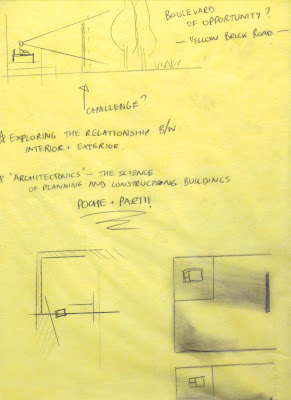 BOULEVARD
OF OPPORTUNITY?
— YELLOW BRICK ROAD —
CHALLENGE?
EXPLORING THE RELATIONSHIP B/W
INTERIOR + EXTERIOR.
"ARCHITECTONICS" — THE SCIENCE
OF PLANNING AND CONSTRUCTIONING BUILDINGS
POCHE + PARTI!